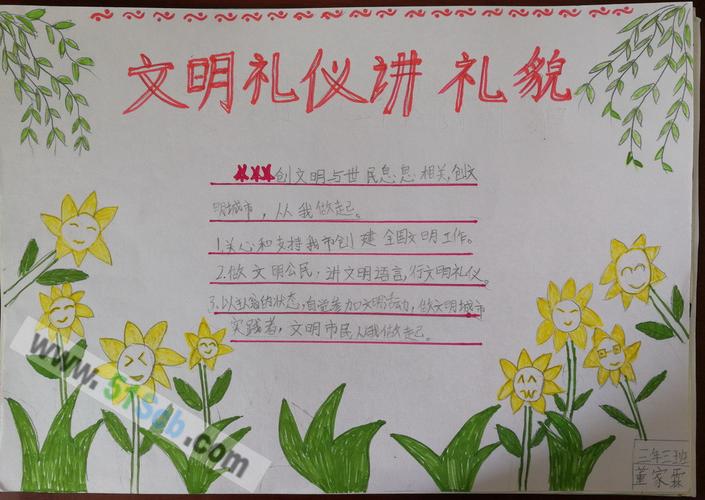 文明礼仪讲礼貌
创文明与世民息息相关,创文
明城市,从我做起。
1.关心和支持我市创建全国文明工作。
2.做文明公民,讲文明语言,行文明礼仪。
3.以认的状态,自觉参加文明活动,做文明城市
实践者,文明市民从我做起。
www.51Scb.com
二年三班
董家霖